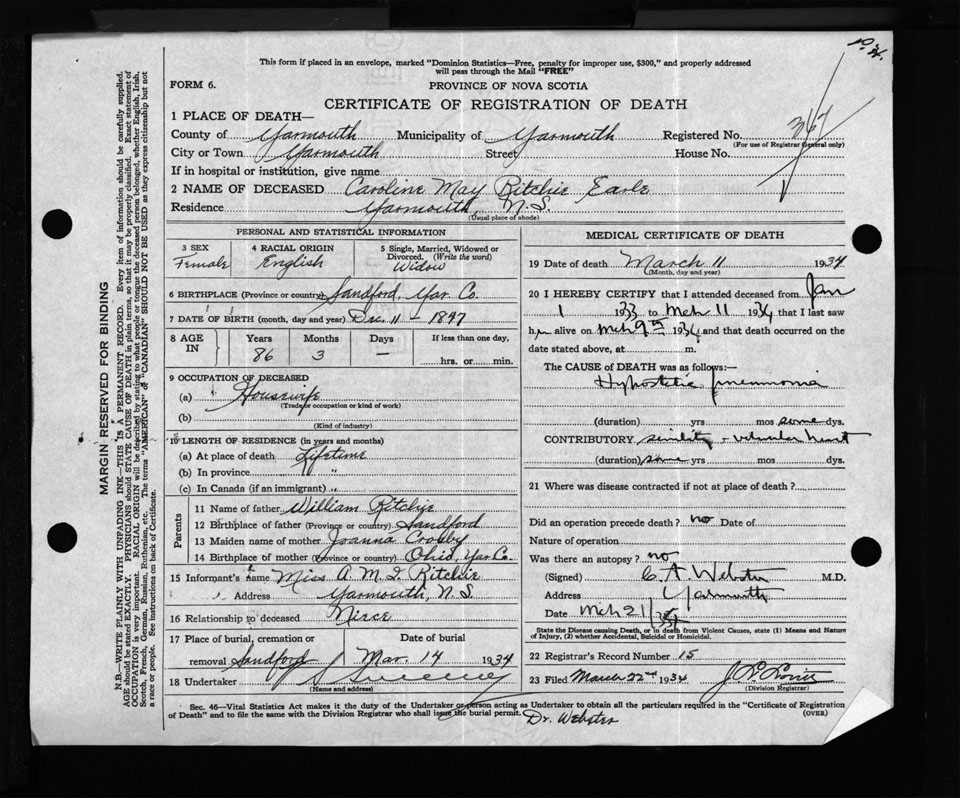 This form if placed in an envelope, marked "Dominion Statistics—Free, penalty for improper use, $300," and properly addressed
will pass through the Mail "FREE"
FORM 6.
PROVINCE OF NOVA SCOTIA
CERTIFICATE OF REGISTRATION OF DEATH
1 PLACE OF DEATH—
County of Yarmouth Municipality of Yarmouth Registered No. 367
(For use of Registrar General only)
City or Town Yarmouth Street House No.
If in hospital or institution, give name
2 NAME OF DECEASED Caroline May Ritchie Earle
Residence Yarmouth, N.S.
(Usual place of abode)
MARGIN RESERVED FOR BINDING
N.B.—WRITE PLAINLY WITH UNFADING INK—THIS IS A PERMANENT RECORD. Every item of information should be carefully supplied.
AGE should be stated EXACTLY. PHYSICIANS should STATE CAUSE OF DEATH in plain terms, so that it may be properly classified. Exact statement of
OCCUPATION is very important. RACIAL ORIGIN will be described by stating to what people or tongue the deceased person belonged, whether English, Irish,
Scotch, French, German, Russian, Ruthenian, etc. The terms "AMERICAN" or "CANADIAN" SHOULD NOT BE USED as they express citizenship but not
a race or people. See instructions on back of Certificate.
PERSONAL AND STATISTICAL INFORMATION
3 SEX
Female
4 RACIAL ORIGIN
English
5 Single, Married, Widowed or
Divorced. (Write the word)
Widow
6 BIRTHPLACE (Province or country) Sandford, Yar. Co.
7 DATE OF BIRTH (month, day and year) Dec. 11 - 1847
8 AGE IN
Years
86
Months
3
Days
—
If less than one day,
hrs. or min.
9 OCCUPATION OF DECEASED
(a) Housewife
(Trade or occupation or kind of work)
(b)
(Kind of industry)
10 LENGTH OF RESIDENCE (in years and months)
(a) At place of death Lifetime
(b) In province "
(c) In Canada (if an immigrant) "
Parents
11 Name of father William Ritchie
12 Birthplace of father (Province or country) Sandford
13 Maiden name of mother Joanna Crosby
14 Birthplace of mother (Province or country) Ohio, Yar. Co.
15 Informant's name Miss A. M. I. Ritchie
" Address Yarmouth, N.S.
16 Relationship to deceased Niece
17 Place of burial, cremation or
removal Sandford
Date of burial
Mar. 14 1934
18 Undertaker Sweeney
(Name and address)
MEDICAL CERTIFICATE OF DEATH
19 Date of death March 11 1934
(Month, day and year)
20 I HEREBY CERTIFY that I attended deceased from Jan
1 1933 to Mch 11 1934 that I last saw
her alive on Mch 9th 1934 and that death occurred on the
date stated above, at m.
The CAUSE OF DEATH was as follows:—
Hypostatic pneumonia
(duration) yrs mos some dys.
CONTRIBUTORY senility - valvular heart
(duration) some yrs mos dys.
21 Where was disease contracted if not at place of death?
Did an operation precede death? no Date of
Nature of operation
Was there an autopsy? no
(Signed) C. A. Webster M.D.
Address Yarmouth
Date Mch 21/34
State the Disease causing Death, or in death from Violent Causes, state (1) Means and Nature
of Injury, (2) whether Accidental, Suicidal or Homicidal.
22 Registrar's Record Number 15
23 Filed March 22nd 1934
(Division Registrar)
Sec. 46—Vital Statistics Act makes it the duty of the Undertaker or person acting as Undertaker to obtain all the particulars required in the "Certificate of Registration
of Death" and to file the same with the Division Registrar who shall issue the burial permit. (OVER)
Dr. Webster